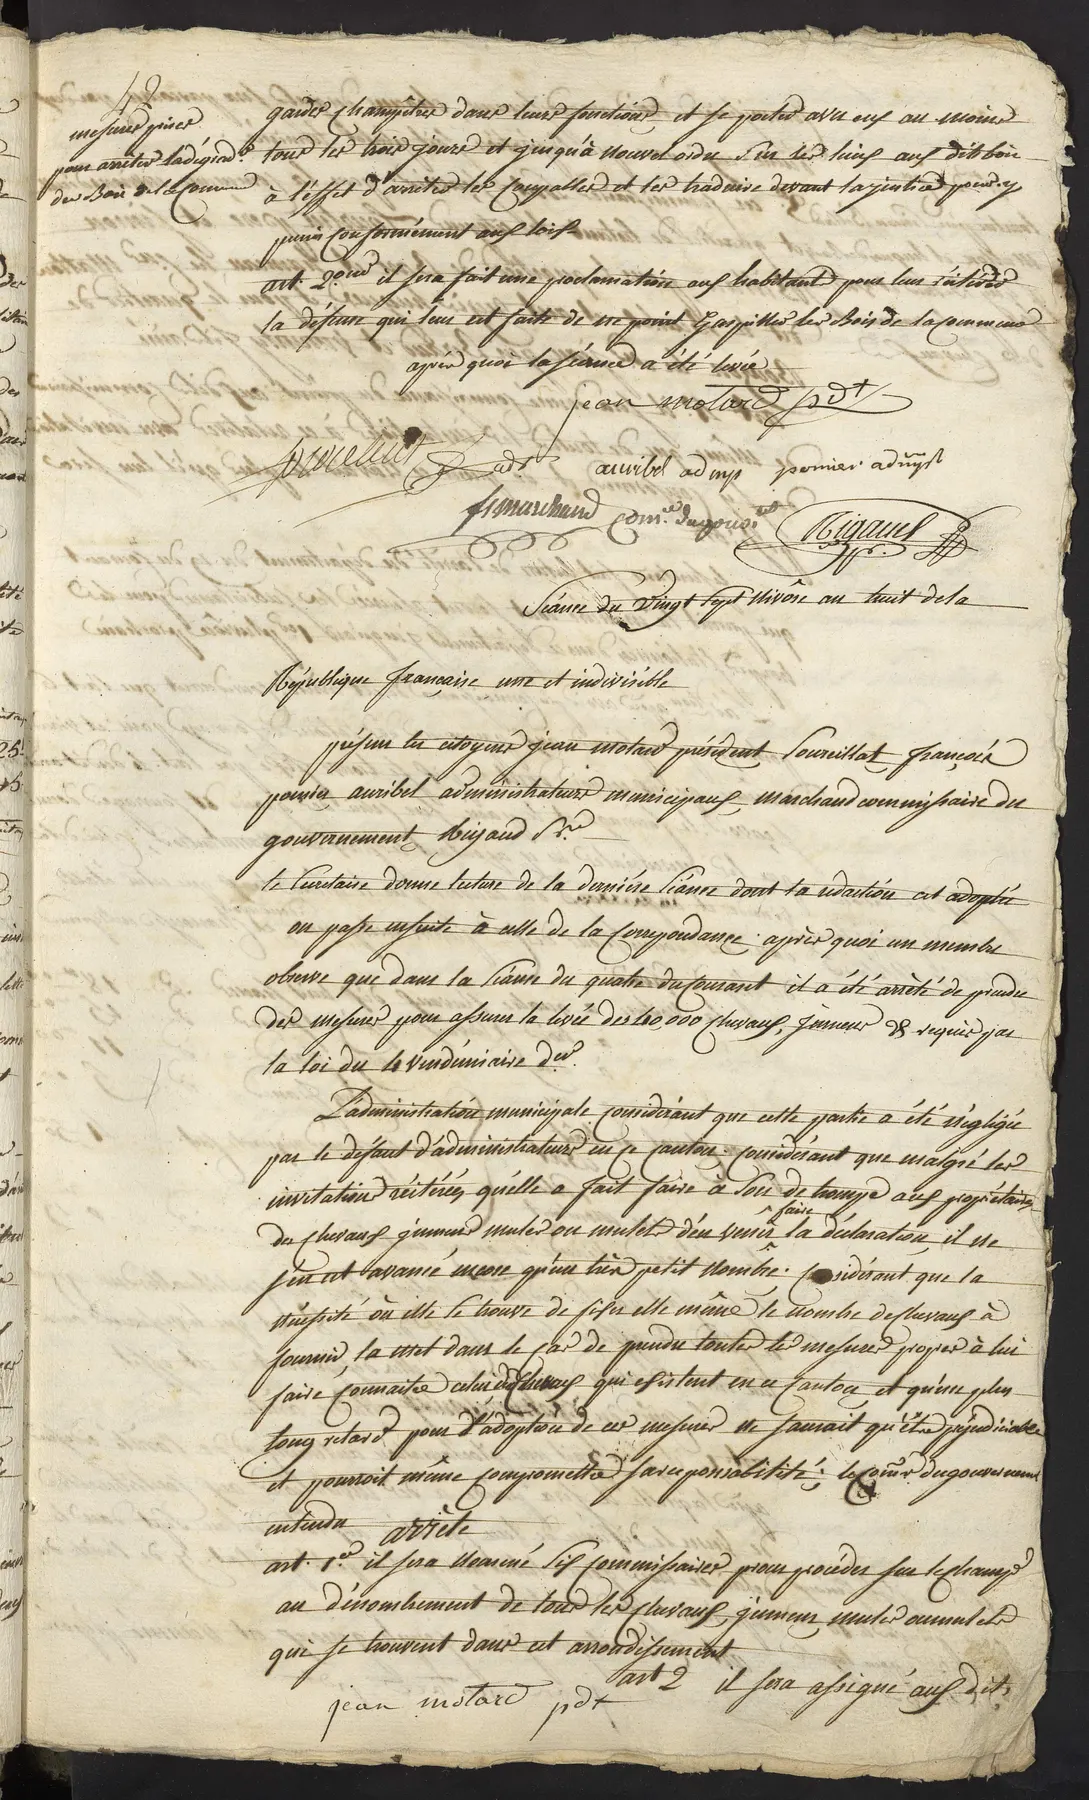 42
mesures prises
pour arreter la dégrad.on
des Bois de la Commune
gardes champêtres dans leurs fonctions, et se porter avec eux au moins
tous les trois jours et jusqu'à nouvel ordre sur les lieux aus dits bois
à l'éffet d'arrêter les coupables et les traduire devant la justice pour y
punis conformément aux lois
art. 2.eme il sera fait une proclamation aux habitants pour leur réiterer
la défense qui leur est faite de ne point Gaspiller les Bois de la Commune
après quoi la séance a été levée
jean motard pdt
auribel admr pernier admr
f. marchand com.re du gouv.
Rigaud
Séance du vingt sept Nivôse an huit de la
République française une et indivisible
présens les citoyens jean motard président, Soureillat, françois
pernier, auribel administrateurs municipaux, marchand commissaire du
gouvernement, Rigaud S.re
le Secretaire donne lecture de la dernière séance dont la rédaction est adoptée
on passe ensuite à celle de la correspondance. après quoi un membre
observe que dans la séance du quatre du courant il a été arrêté de prendre
des mesures pour assurer la levée des 40000 chevaux, jumens & requis par
la loi du 4 vendémiaire der.
L'administration municipale considérant que cette partie a été négligée
par le défaut d'administrateurs en ce canton. considérant que malgré les
invitations réitérées qu'elle a fait faire à Son de trompe aux propriétaires
de chevaux jumens mules ou mulets d'en venir faire la déclaration, il ne
s'en est avancé encore qu'un très petit nombre. Considérant que la
nécessité où elle se trouve de fixer elle même le nombre de chevaux à
fournir, la met dans le cas de prendre toutes les mesures propres à lui
faire connaitre celui des chevaux qui existent en ce canton, et qu'un plus
long retard pour l'adoption de ces mesures ne saurait qu'être préjudiciable
et pourroit même compromettre sa responsabilité; le com.re du gouvernement
entendu arrête
art. 1.er il sera Nommé Six commissaires pour procéder sur le champ
au dénombrement de tous les chevaux, jumens mules ou mulets
qui se trouvent dans cet arrondissement
art 2 il sera assigné aux dits
jean motard pdt